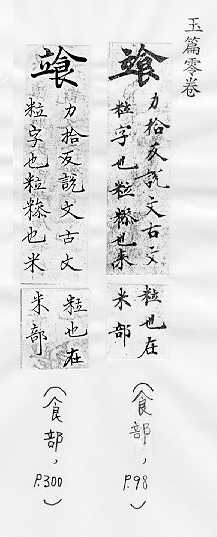 玉篇零卷
力拾反説文古文
粒字也粒糝也米
粒也在
米部
(食部,P.98)
力拾反説文古文
粒字也粒糝也米
粒也在
米部
(食部,P.300)